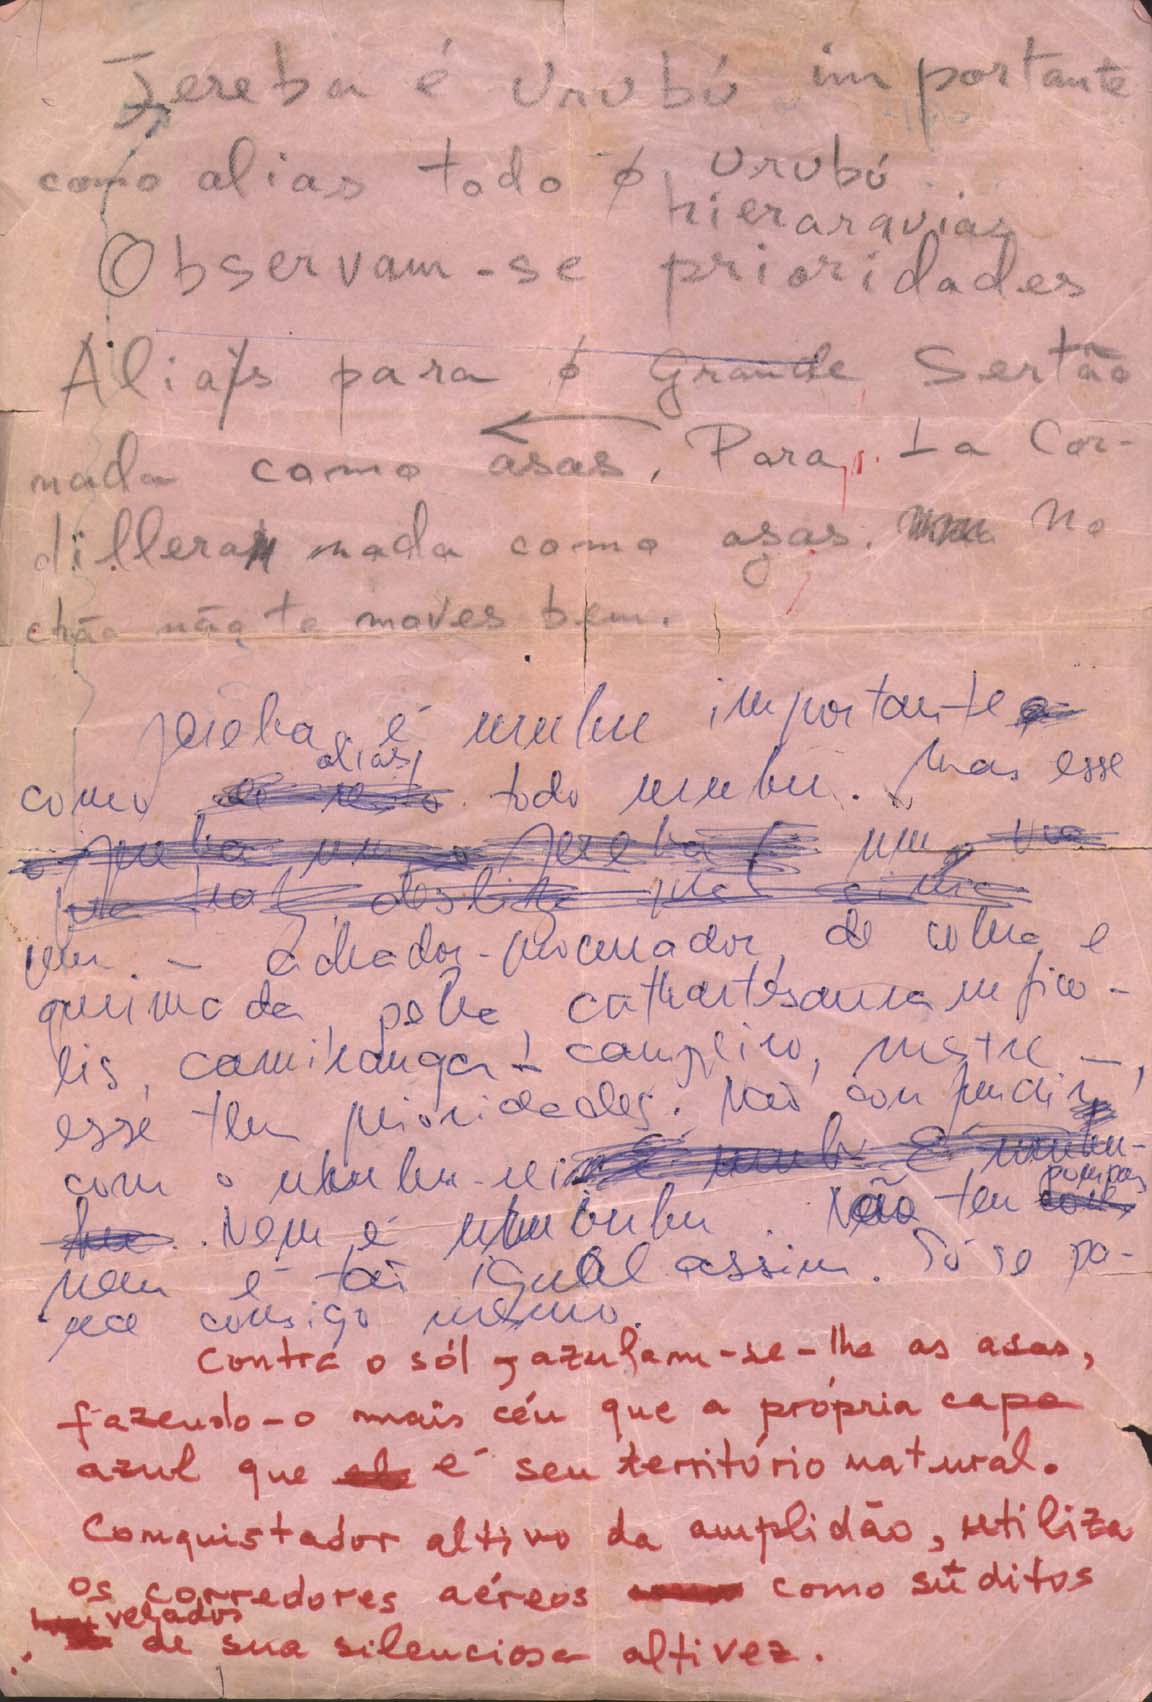 Jereba é Urubú importante
como alias todo o urubú
hierarquias
Observam-se prioridades
Aliás para o Grande Sertão
nada como asas. Para La Cor-
dillera nada como asas. No
chão não te moves bem.
Jereba é urubu importante
alias
como todo urubu. Mas esse
um
um. - achador-procurador, de
queimada, pelle, cathartes aura ruficol-
lis, camiranga - campeiro, mestre -,
esse tem prioridades. Não confundir
com o urubu-rei
pompas
Nem é urubu. Não tem
nem é tão igual assim. Só se pa-
rece consigo mesmo.
Contra o sól, azulam-se-lhe as asas,
fazendo-o mais céu que a própria capa
azul que é seu território natural.
Conquistador altivo da amplidão, utiliza
os corredores aéreos como súditos
velados
de sua silenciosa altivez.